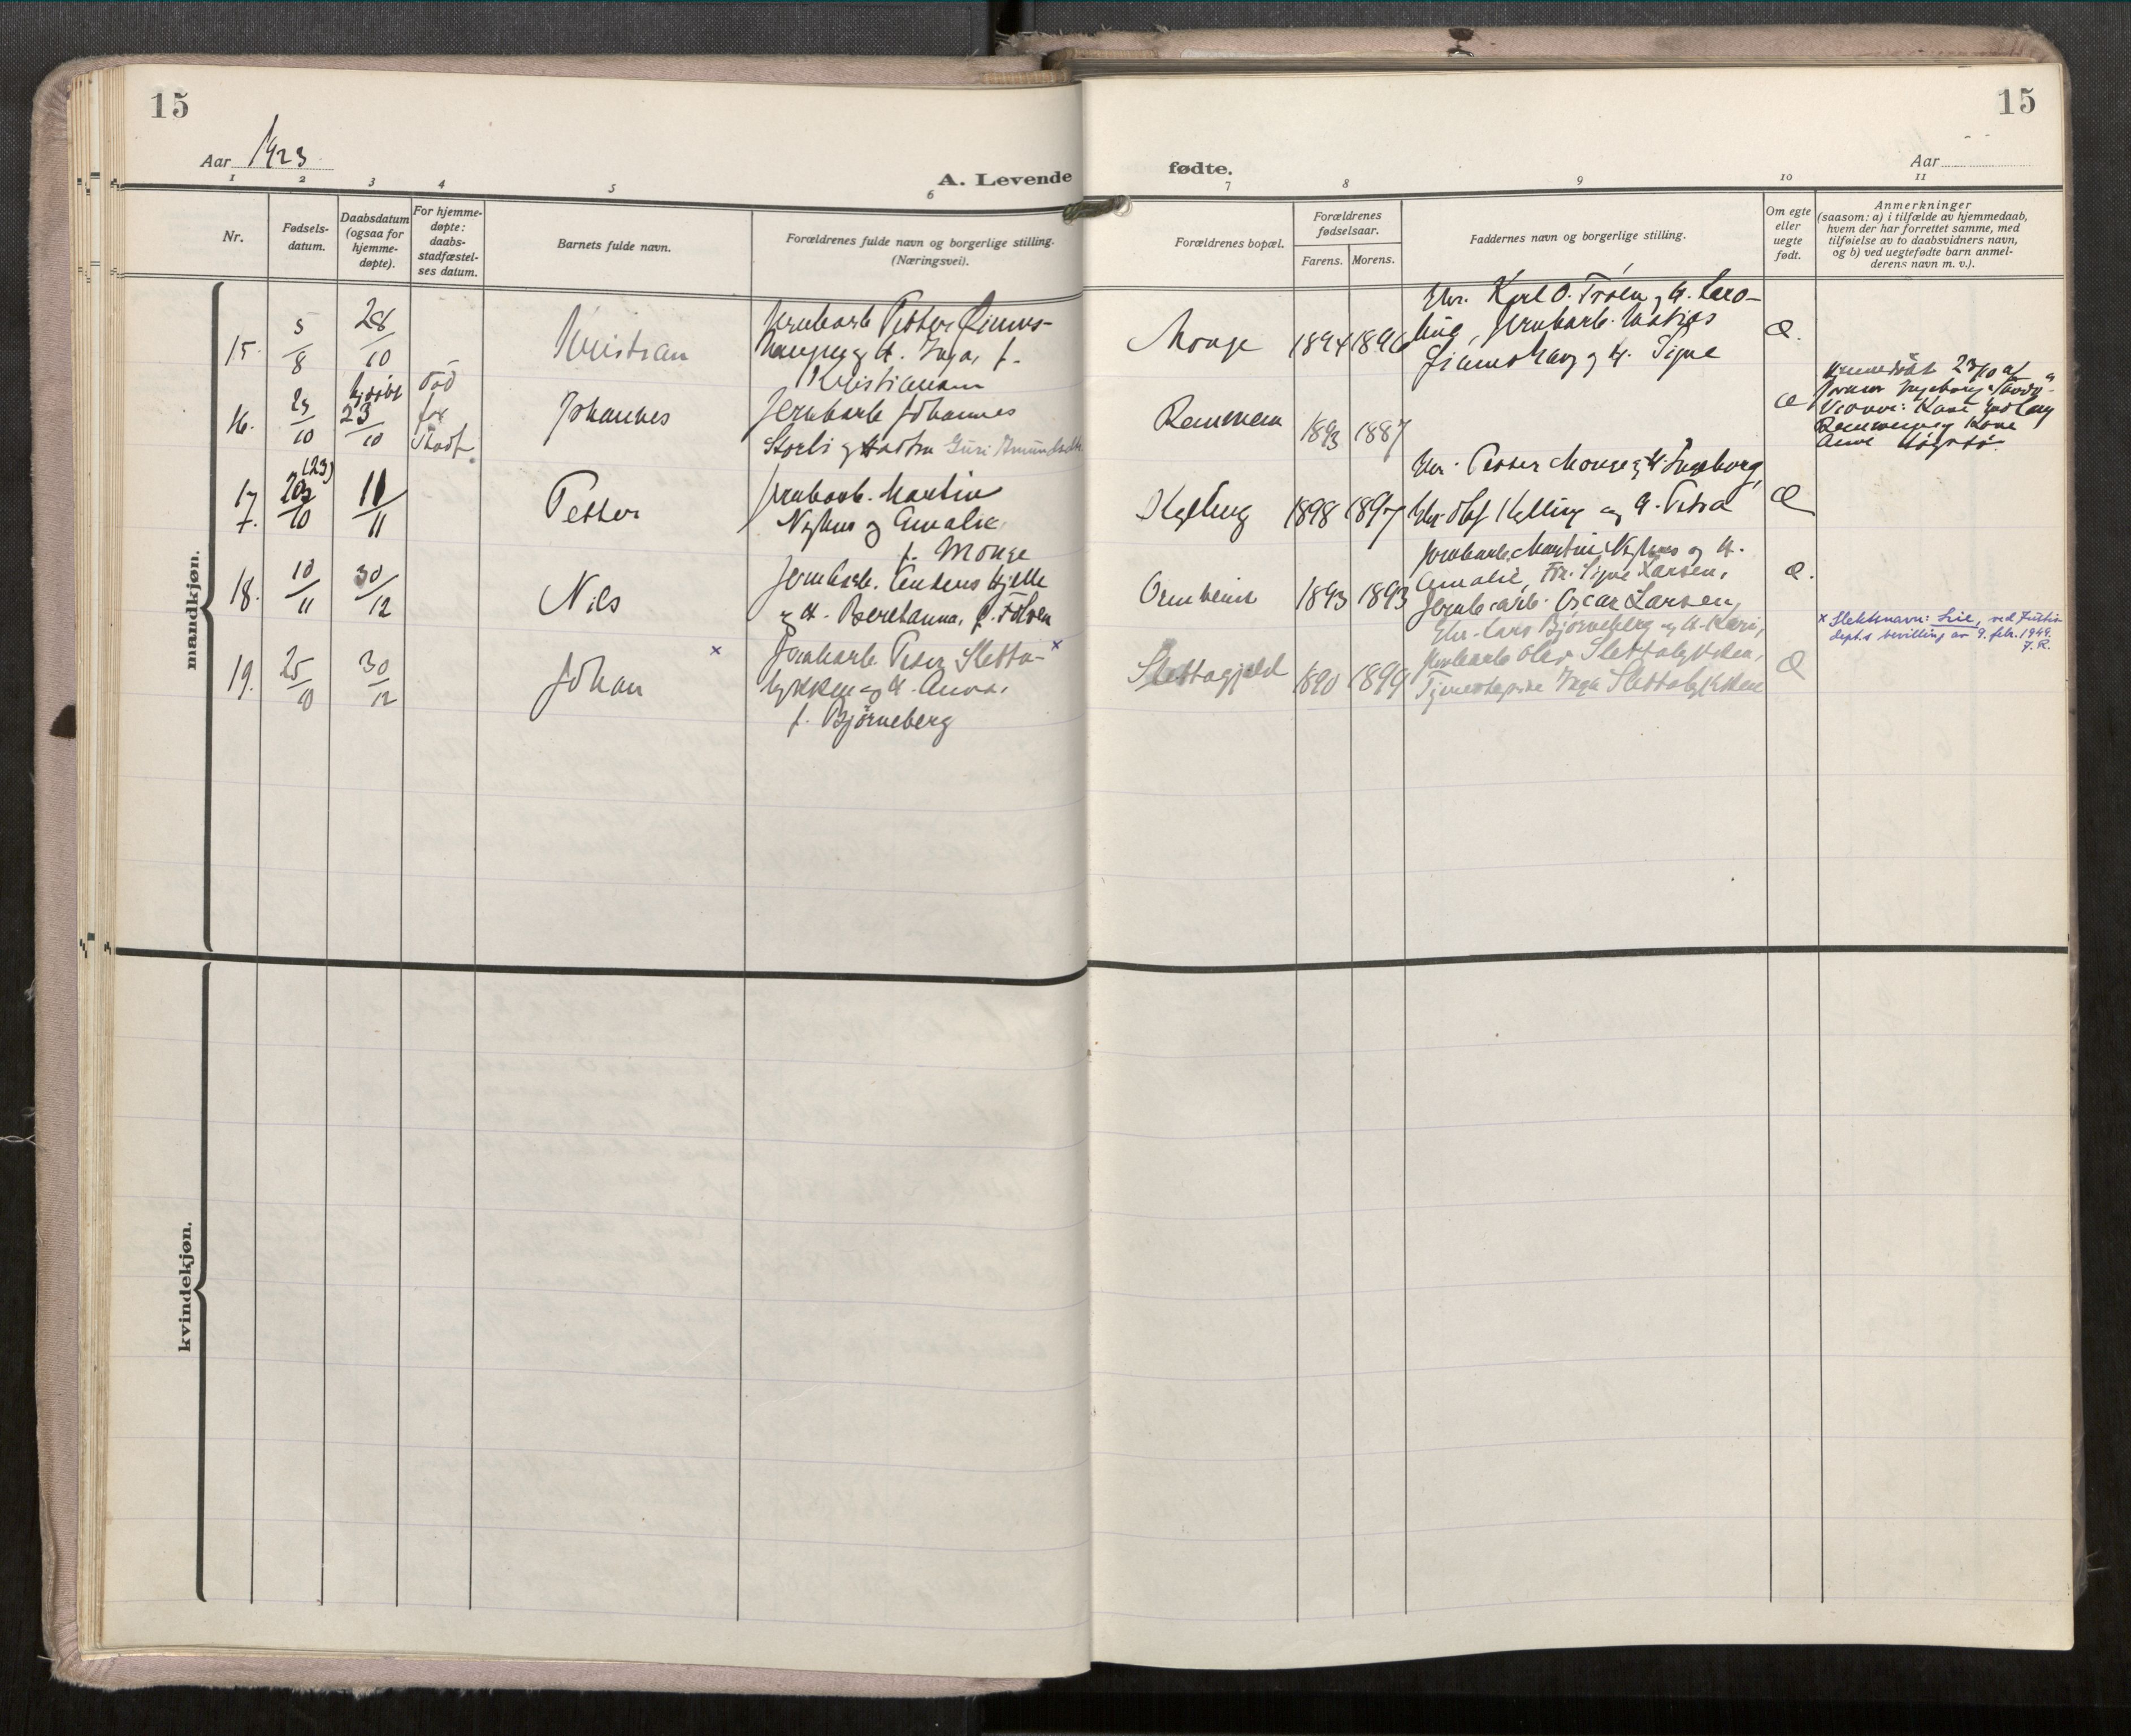 15
15
Aar 1923
A. Levende
fødte.
Aar
1 2 3 4 5 6 7 8 9 10 11
Nr.
Fødsels-
datum.
Daabsdatum
(ogsaa for
hjemme-
døpte).
For hjemme-
døpte:
daabs-
stadfæstel-
ses datum.
Barnets fulde navn.
Forældrenes fulde navn og borgerlige stilling.
(Næringsvei).
Forældrenes bopæl.
Forældrenes
fødselsaar.
Farens. Morens.
Faddernes navn og borgerlige stilling.
Om egte
eller
uegte
født.
Anmerkninger
(saasom: a) i tilfælde av hjemmedaab,
hvem der har forrettet samme, med
tilføielse av to daabsvidners navn,
og b) ved uegtefødte barn anmel-
derens navn m. v.).
mandkjøn.
15. 5/8 28/10
Kristian
Jernbarb. Petter
h. Inga, f.
Kristiansen
Monge
1894 1896
Gbr. Karl O. Trøen og h. Caro-
line, Jernbarb. Matias
og h. Signe
16. 23/10 23/10
Død
før
Stadf.
Johannes
Jernbarb. Johannes
Storli og hustru Guri
Remmem
1893 1887
Hjemmedøbt 23/10 af
Jordmor Ingeborg
17. 20/10 (23) 11/11
Petter
Jernbarb. Martin
og Amalie,
f. Monge
Kylling
1898 1897
Gbr. Petter Monge og h. Ingeborg,
Gbr. Olaf Kylling og h. Petra
Æ
18. 10/11 30/12
Nils
Jernbarb. Hjelle
og h. Berethanna, f.
Ormheim
1893 1893
Jernbarb. Martin og h.
Amalie, Frk. Signe Larsen,
Jernb.arb. Oscar Larsen,
19. 25/10 30/12
Johan ×
Jernbarb. Peter Sletta- ×
lykken og h. Anna,
f. Bjørneberg
Slettagjæld
1890 1899
Gbr. Lars Bjørneberg og h. Kari,
Jernbarb. Olav Slettalykken,
Tjenestepike Inga Slettalykken
× Slektsnavn: Lie, ved Justis-
dept.s bevilling av 9. febr. 1949.
J. R.
kvindekjøn.